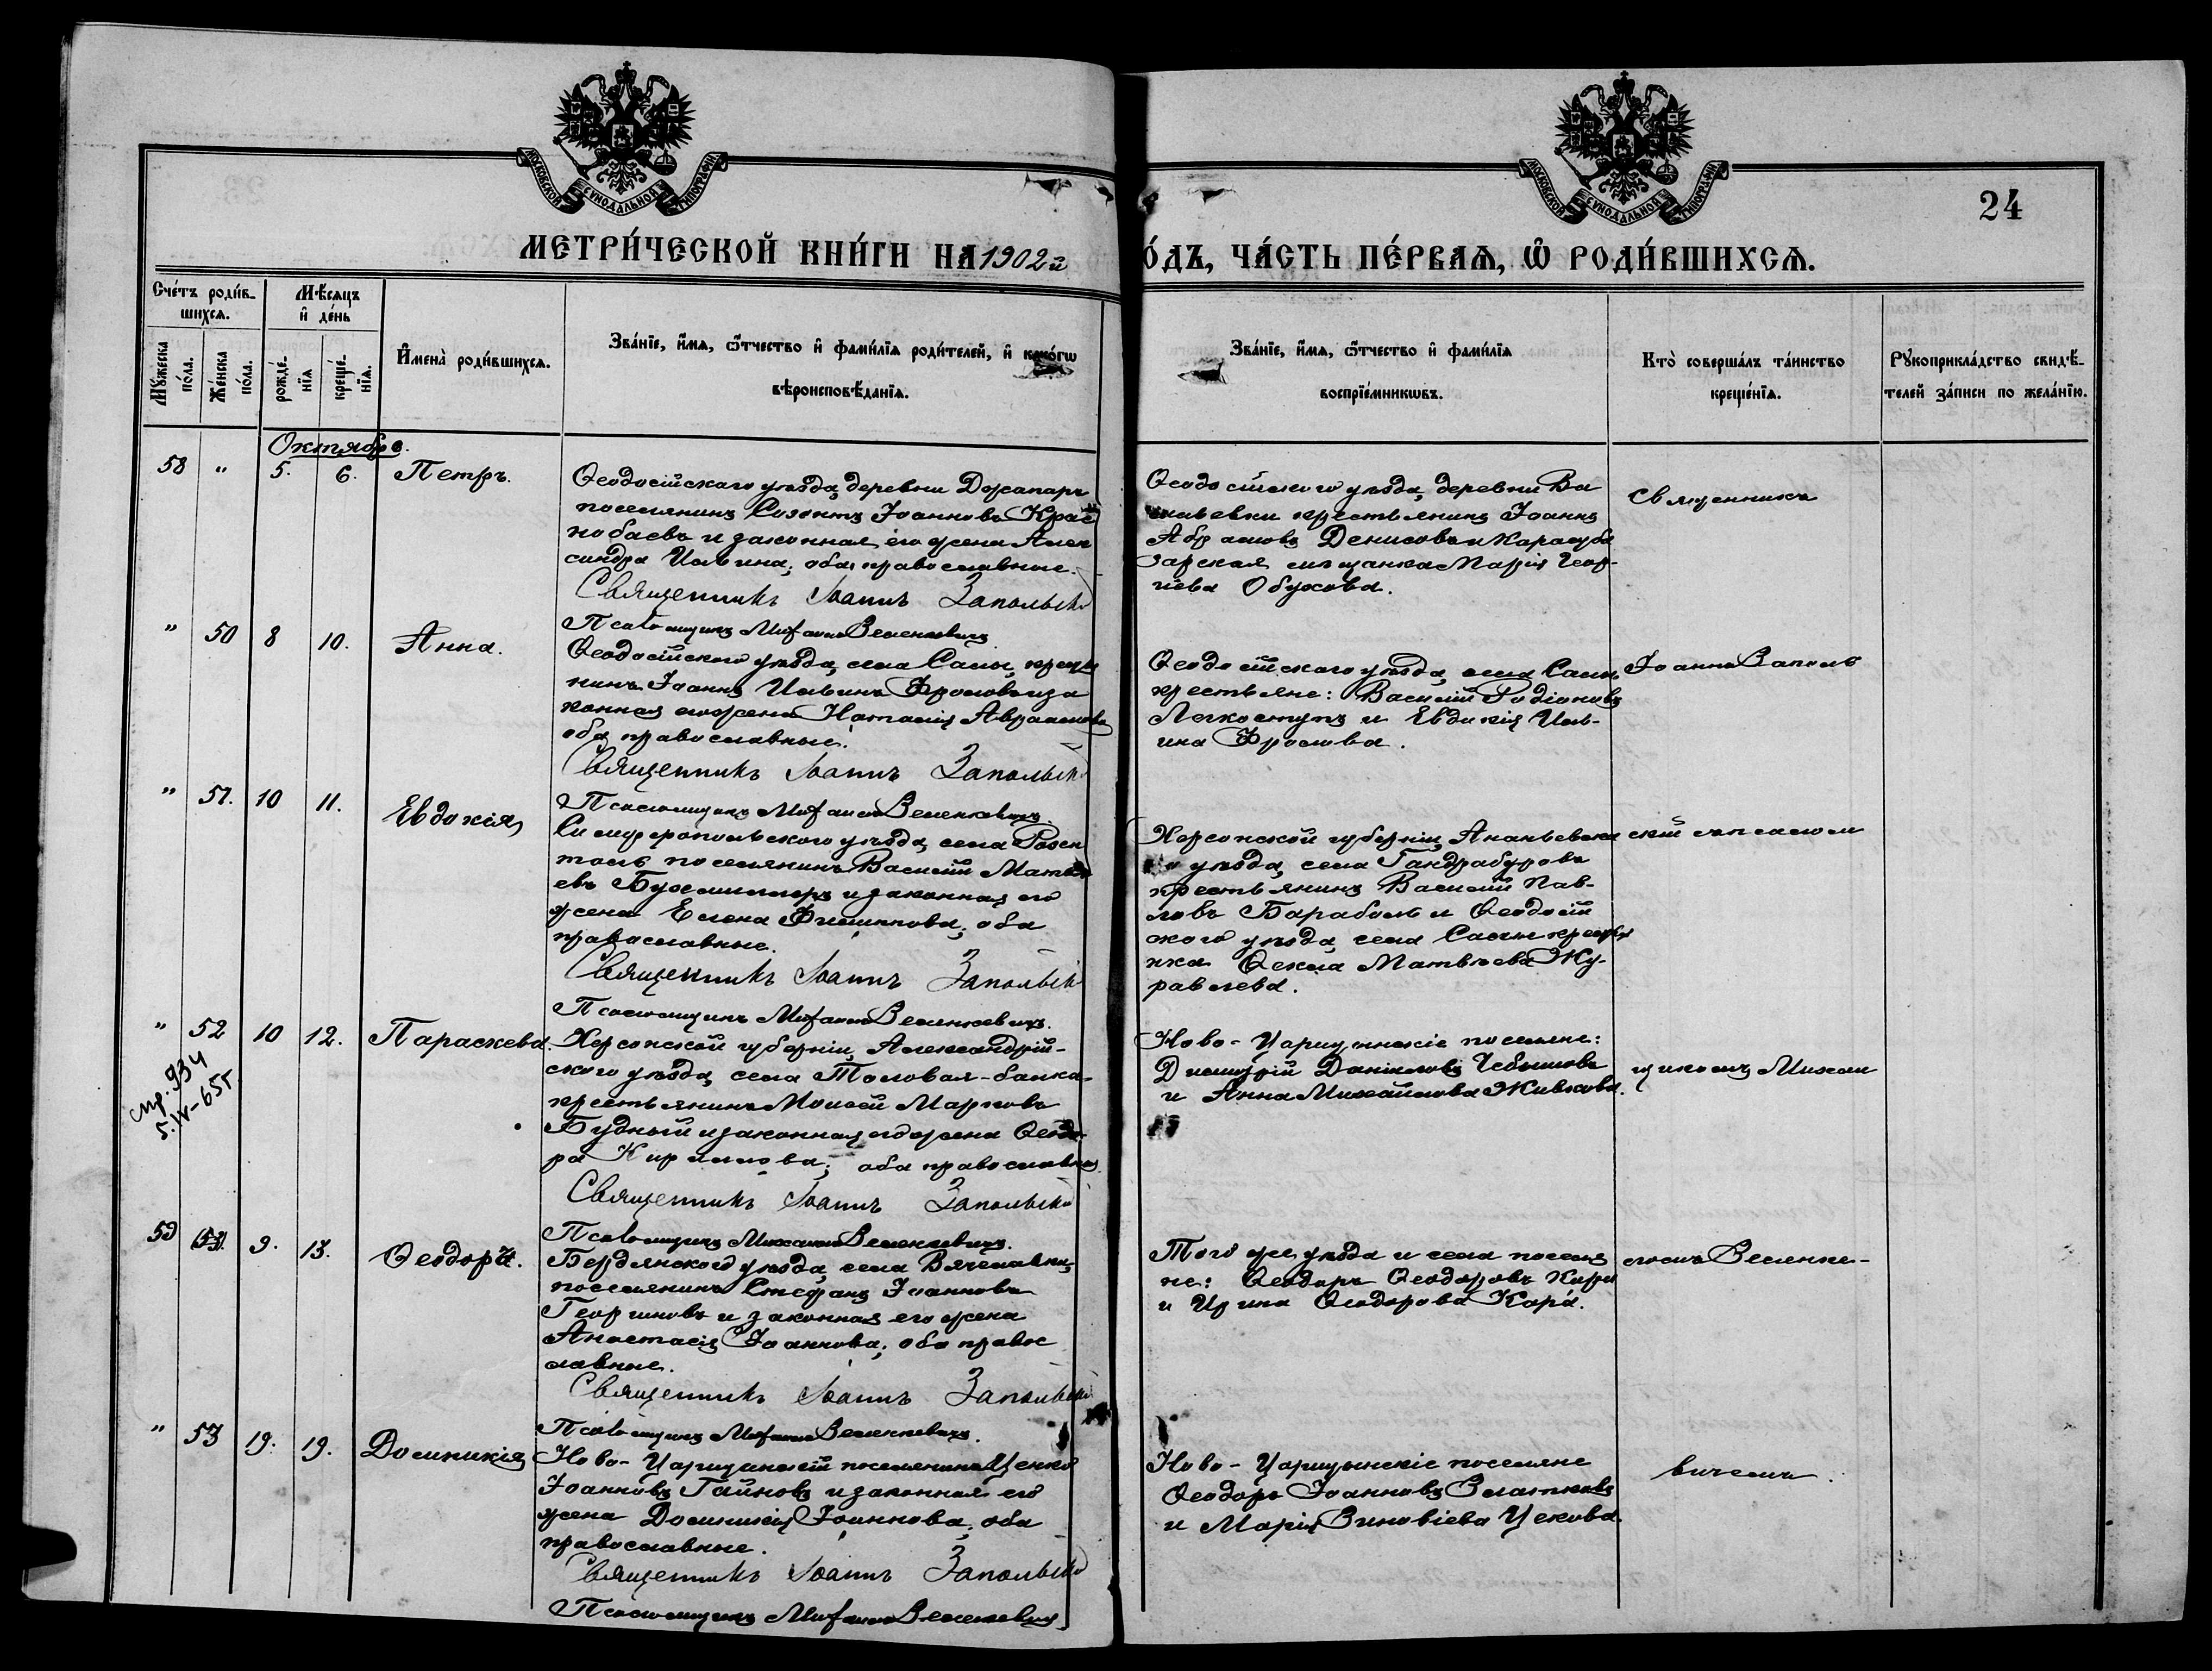 МОСКОВСКОЙ СѴНОДАЛЬНОЙ ТИПОГРАФІИ
МОСКОВСКОЙ СѴНОДАЛЬНОЙ ТИПОГРАФІИ
24
МЕТРИ́ЧЕСКОЙ КНИ́ГИ НА 1902й
О́ДЪ, ЧА́СТЬ ПЕ́РВАѦ, Ѡ҆ РОДИ́ВШИХСѦ.
Сче́тъ роди́в-
шихсѧ.
Мꙋ́жеска по́ла.
Же́нска по́ла.
Мѣ́сѧцъ
и҆ де́нь
рожде́-
нїѧ
креще́-
нїѧ.
И҆мена̀ роди́вшихсѧ.
Зва́нїе, и҆́мѧ, ѻ҆́тчество и҆ фами́лїѧ роди́телей, и҆ како́гѡ
вѣроисповѣ́данїѧ.
Зва́нїе, и҆́мѧ, ѻ҆́тчество и҆ фами́лїѧ
воспрїе́мникѡвъ.
Кто̀ соверша́лъ та́инство
креще́нїѧ.
Рꙋкоприкла́дство свидѣ́-
телей за́писи по жела́нїю.
Октябрь.
58 " 5. 6. Петръ.
Ѳеодосійскаго уѣзда, деревни Джапаръ
поселянинъ Созонтъ Іоанновъ Крас
нобаевъ и законная его жена Алек
сандра Ильина; оба православные.
Священникъ Іоаннъ Запольскій
Псаломщикъ Михаилъ Веленкевичъ
Ѳеодосійскаго уѣзда, деревни Ва
сильевки крестьянинъ Іоаннъ
Абрамовъ Денисовъ и Карасуба
зарская мѣщанка Марія Геор-
гіева Обухова.
Священникъ
" 50 8 10. Анна.
Ѳеодосійскаго уѣзда, села Салы, крестья
нинъ Іоаннъ Ильинъ Фроловъ и за
конная его жена Наталія Авраамова
оба православные.
Священникъ Іоаннъ Запольскій
Псаломщикъ Михаилъ Веленкевичъ.
Ѳеодосійскаго уѣзда, села Салы
крестьяне: Василій Родіоновъ
Легкоступъ и Евдокія Иль-
ина Фролова.
Іоаннъ Заполь
" 51. 10 11. Евдокія
Симферопольскаго уѣзда, села Розен
таль поселянинъ Василій Матвѣ
евъ Бухмиллеръ и законная его
жена Елена Филиппова; оба
православные.
Священникъ Іоаннъ Запольскій
Псаломщикъ Михаилъ Веленкевичъ.
Херсонской губерніи, Ананьевска
го уѣзда, села Гандрабурова
крестьянинъ Василій Пав-
ловъ Бараболь и Ѳеодосій
скаго уѣзда, села Салы крестья
нка Ѳекла Матвѣева Жу-
равлева.
скій съ псалом
" 52 10 12. Параскева.
стр. 934
5.IV-65г
Херсонской губерніи, Александрій-
скаго уѣзда, села Толовая-балка-
крестьянинъ Моисей Марковъ
Будный и законная его жена Ѳеодо-
ра Кириллова; оба православные
Священникъ Іоаннъ Запольскій
Псаломщикъ Михаилъ Веленкевичъ.
Ново-Царицынскіе поселяне:
Димитрій Даніиловъ Чебышовъ
и Анна Михайлова Живкова.
щикомъ Михаи
59 (53). 9. 13. Ѳеодоръ.
Бердянскаго уѣзда, села Вячеславки,
поселянинъ Стефанъ Іоанновъ
Георгиновъ и законная его жена
Анастасія Іоаннова; оба правос
лавные.
Священникъ Іоаннъ Запольскій
Псаломщикъ Михаилъ Веленкевичъ.
Того же уѣзда и села поселя
не: Ѳеодоръ Ѳеодоровъ Кара
и Ирина Ѳеодорова Кара.
ломъ Веленке-
" 53 19. 19. Домникія
Ново-Царицынскій поселянинъ Ценко
Іоанновъ Гайновъ и законная его
жена Домникія Іоаннова; оба
православные.
Священникъ Іоаннъ Запольскій
Псаломщикъ Михаилъ Веленкевичъ
Ново-Царицынскіе поселяне
Ѳеодоръ Іоанновъ Златковъ
и Марія Зиновіева Цекова.
вичемъ.